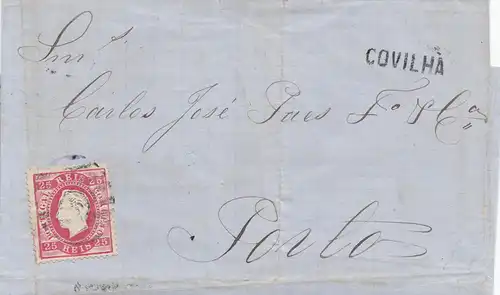 COVILHÃ
Snr.s
Carlos José Paes Fo. & Ca.
Porto
25 REIS 25
25 REIS 25